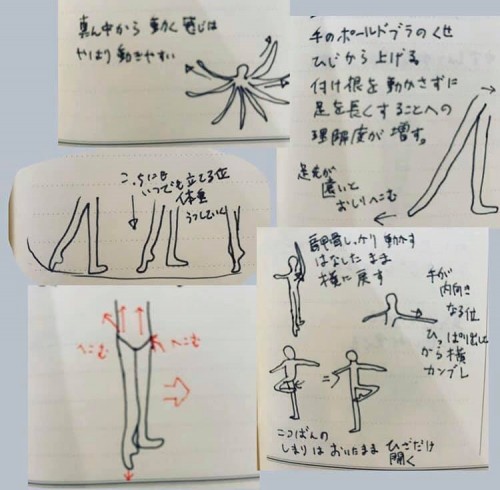 真ん中から動く感じは
やはり動きやすい
手のポールドブラのくせ
ひじから上げる
付け根を動かさずに
足を長くすることへの
理解度が増す。
足先が
遠いと
おしりへこむ
こっちにも
いつでも立てる位
体重
うつしていく
肩甲骨しっかり動かす
はなしたまま
横に戻す
手が
内向き
なる位
ひっぱり出し
から横
カンブレ
へこむ
へこむ
こつばんの
しまりはおいたままひざだけ
開く